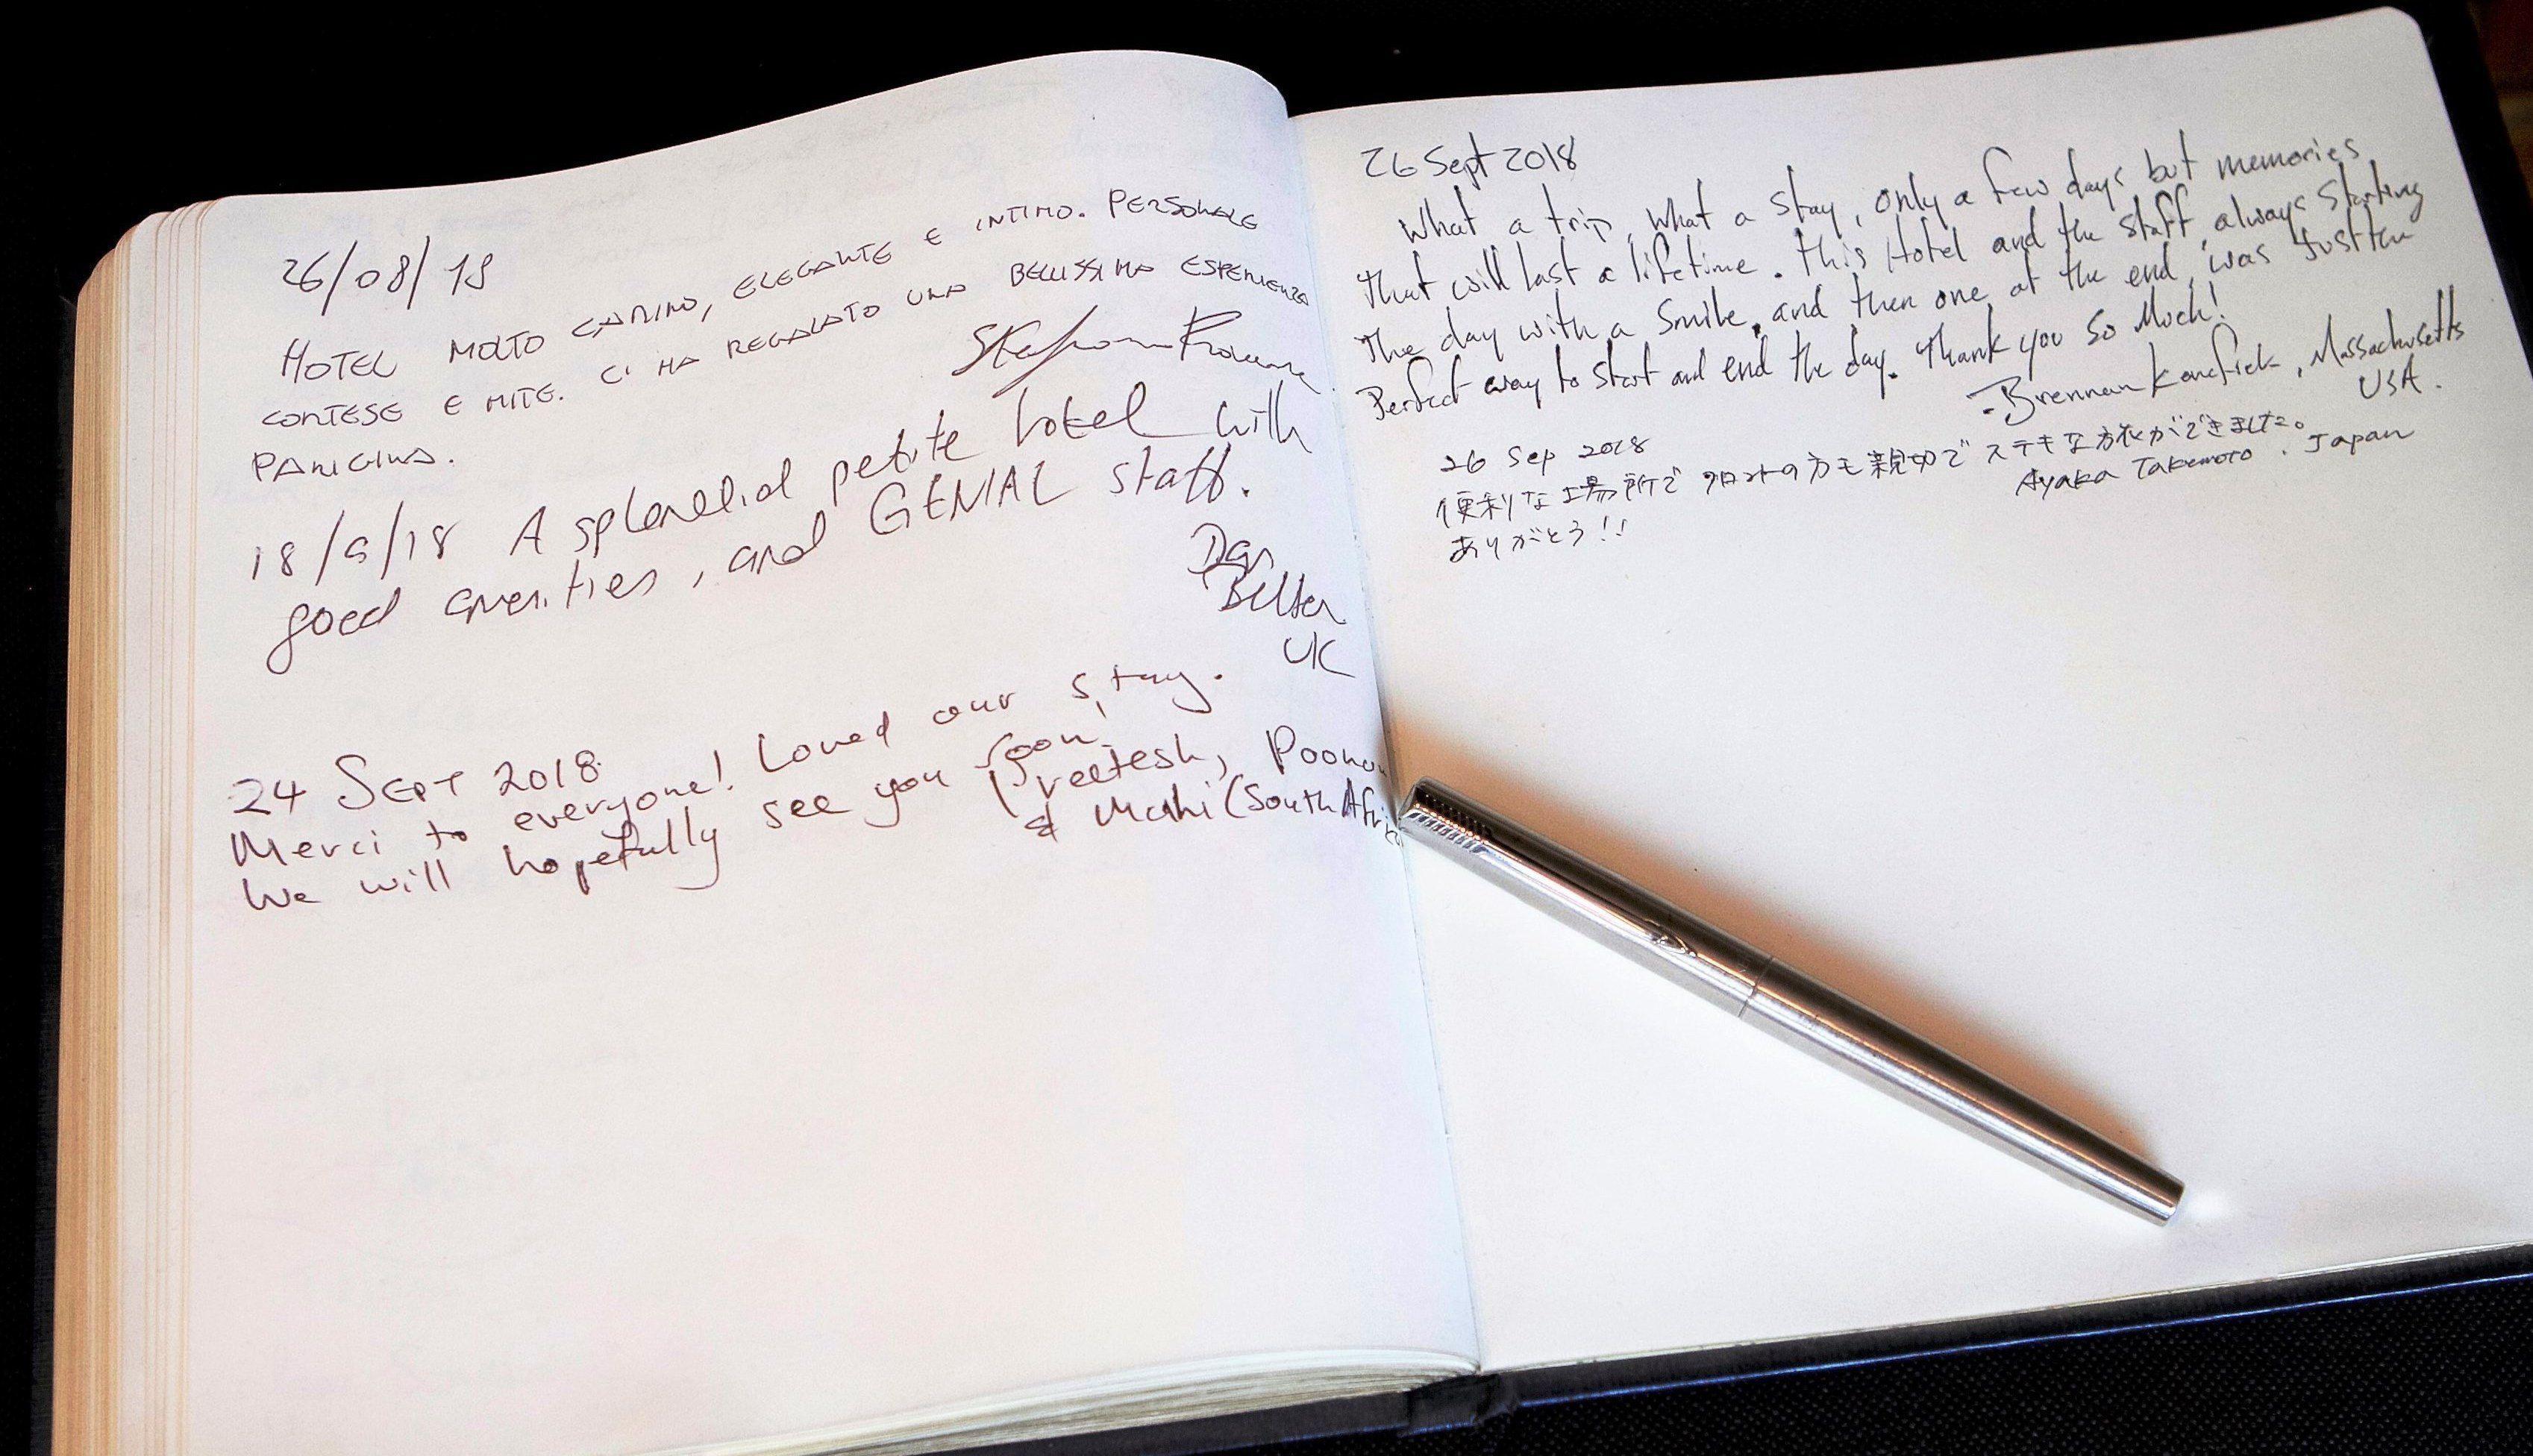 26/08/18
HOTEL MOLTO CARINO, ELEGANTE E INTIMO. PERSONALE
CORTESE E MITE. CI HA REGALATO UNA BELLISSIMA ESPERIENZA
PARIGINA.
18/9/18 A splendid petite hotel with
good amenities, and GENIAL staff.
Dan
UK
24 SEPT 2018
Merci to everyone! Loved our stay.
We will hopefully see you soon.
Preetesh, Poonam
& Mahi (South Africa
26 Sept 2018
What a trip, what a stay, only a few days but memories
that will last a lifetime. This Hotel and the staff, always starting
the day with a smile, and then one at the end, was just the
Perfect way to start and end the day. Thank you so Much!
-Brennan, Massachusetts
USA.
26 Sep 2018
便利な場所で フロントの方も親切で ステキな旅ができました。
ありがとう!!
Ayaka Takemoto. Japan